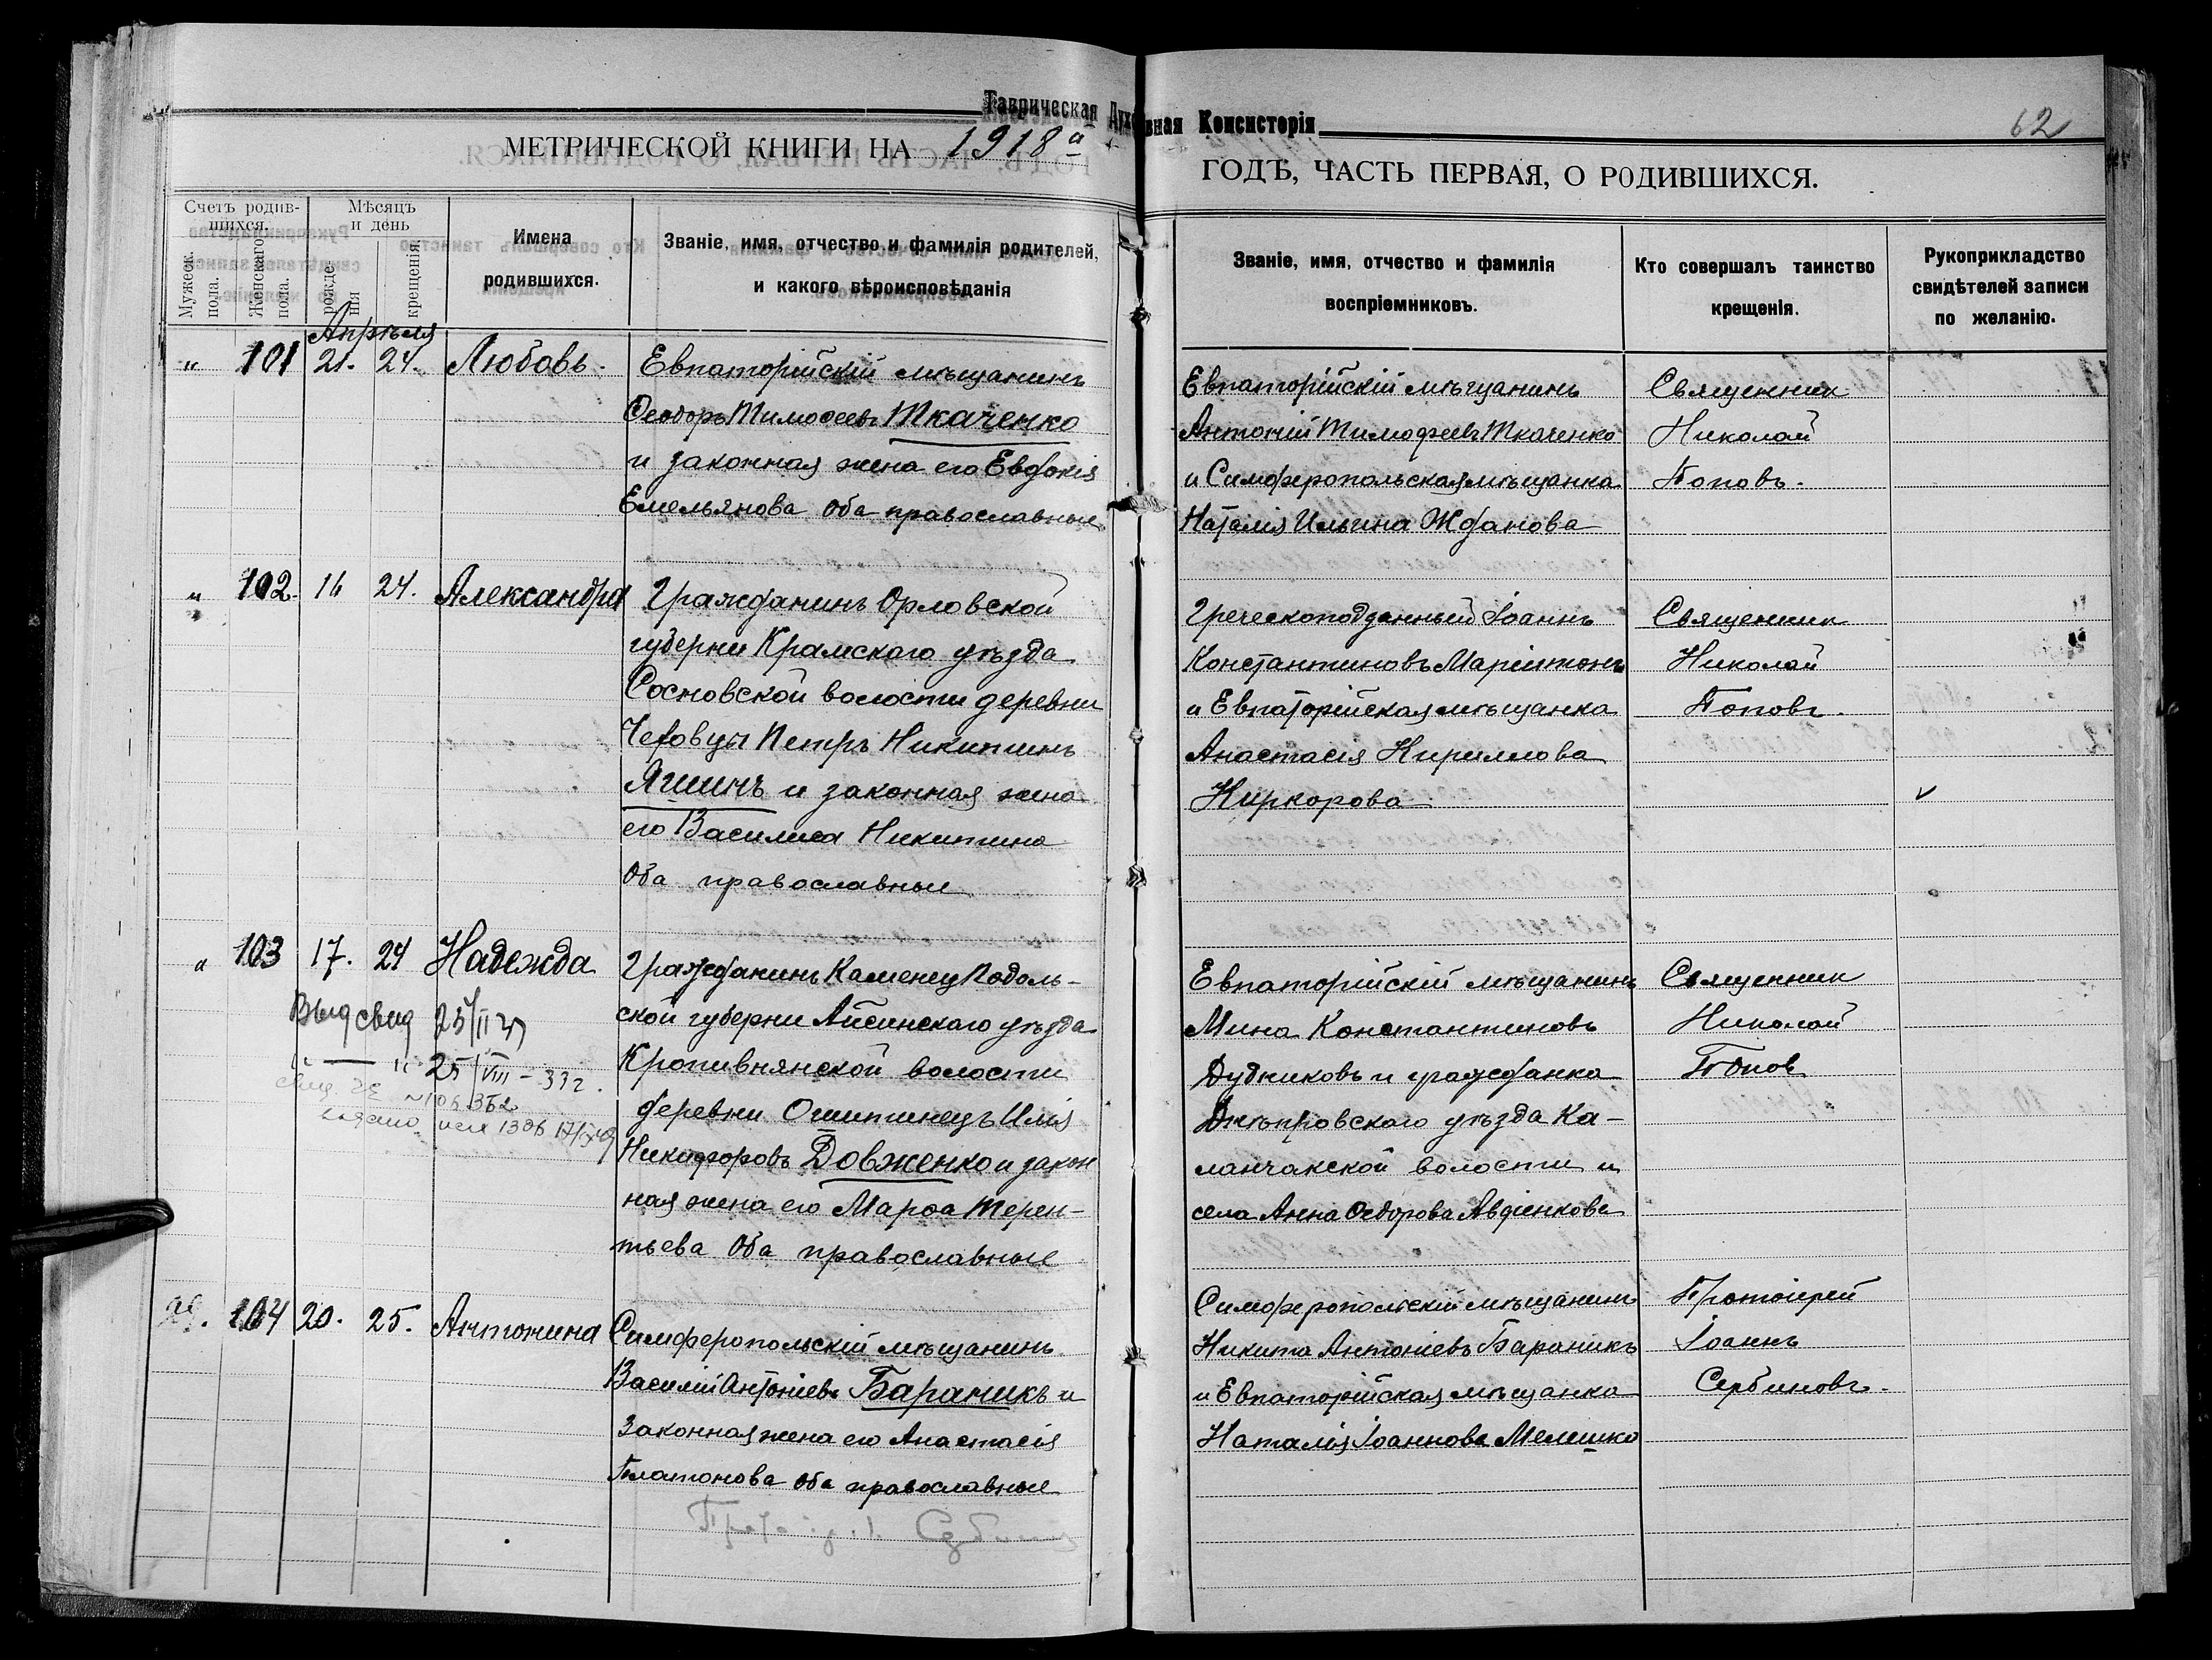 Таврическая Духовная Консисторія
62
МЕТРИЧЕСКОЙ КНИГИ НА 1918й
ГОДЪ, ЧАСТЬ ПЕРВАЯ, О РОДИВШИХСЯ.
Счетъ родив-
шихся.
Мужеск. пола.
Женскаго пола.
Мѣсяцъ
и день
рожде
нія
крещенія.
Имена
родившихся.
Званіе, имя, отчество и фамилія родителей,
и какого вѣроисповѣданія
Званіе, имя, отчество и фамилія
воспріемниковъ.
Кто совершалъ таинство
крещенія.
Рукоприкладство
свидѣтелей записи
по желанію.
Апрѣля
" 101 21. 24. Любовь.
Евпаторійскій мѣщанинъ
Ѳеодоръ Тимоѳеевъ Ткаченко
и законная жена его Евдокія
Емельянова оба православные
Евпаторійскій мѣщанинъ
Антоній Тимофеевъ Ткаченко
и Симферопольская мѣщанка
Наталія Ильина Жданова
Священник
Николай
Поповъ.
" 102. 16 24. Александра
Гражданинъ Орловской
губерни Крамского уѣзда
Сосновской волости деревни
Петръ Никитинъ
Яшинъ и законная жена
его Василиса Никитина
Оба православные
Греческоподданный Іоаннъ
Константиновъ
и Евпаторійская мѣщанка
Анастасія Кириллова
Киркорова
Священник
Николай
Поповъ.
" 103 17. 24 Надежда
Выд свид 23/II
" — " 25/VIII – 33г.
Гражданинъ Каменец Подоль-
ской губерни Айсинскаго уѣзда
Кропивнянской волости
деревни Ошитинецъ Илія
Никифоровъ Довженко и закон
ная жена его Марѳа Терен-
тьева Оба православные
Евпаторійскій мѣщанинъ
Мина Константиновъ
Дудниковъ и гражданка
Днѣпровскаго уѣзда Ка-
ланчакской волости и
села Анна Ѳедорова Авдіенкова
Священник
Николай
Попов
104 20. 25. Антонина
Симферопольскій мѣщанинъ
Василій Антоніевъ Бараникъ и
Законная жена его Анастасія
Платонова Оба православные
Симферопольскій мѣщанинъ
Никита Антоніевъ Бараникъ
и Евпаторійская мѣщанка
Наталія Іоаннова Мелешко
Протоіерей
Іоаннъ
Сербиновъ.